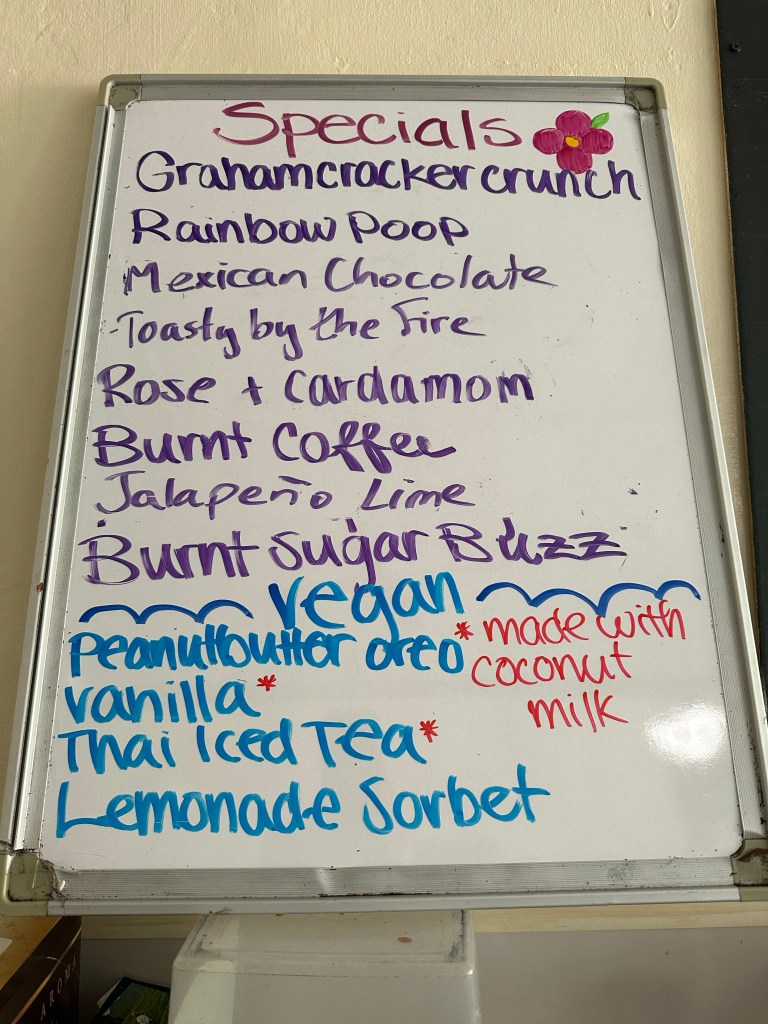 Specials
Grahamcracker crunch
Rainbow Poop
Mexican Chocolate
Toasty by the Fire
Rose + Cardamom
Burnt Coffee
Jalapeño Lime
Burnt Sugar Buzz
vegan
Peanutbutter oreo*
vanilla*
Thai Iced Tea*
Lemonade Sorbet
* made with
coconut
milk
AROMA